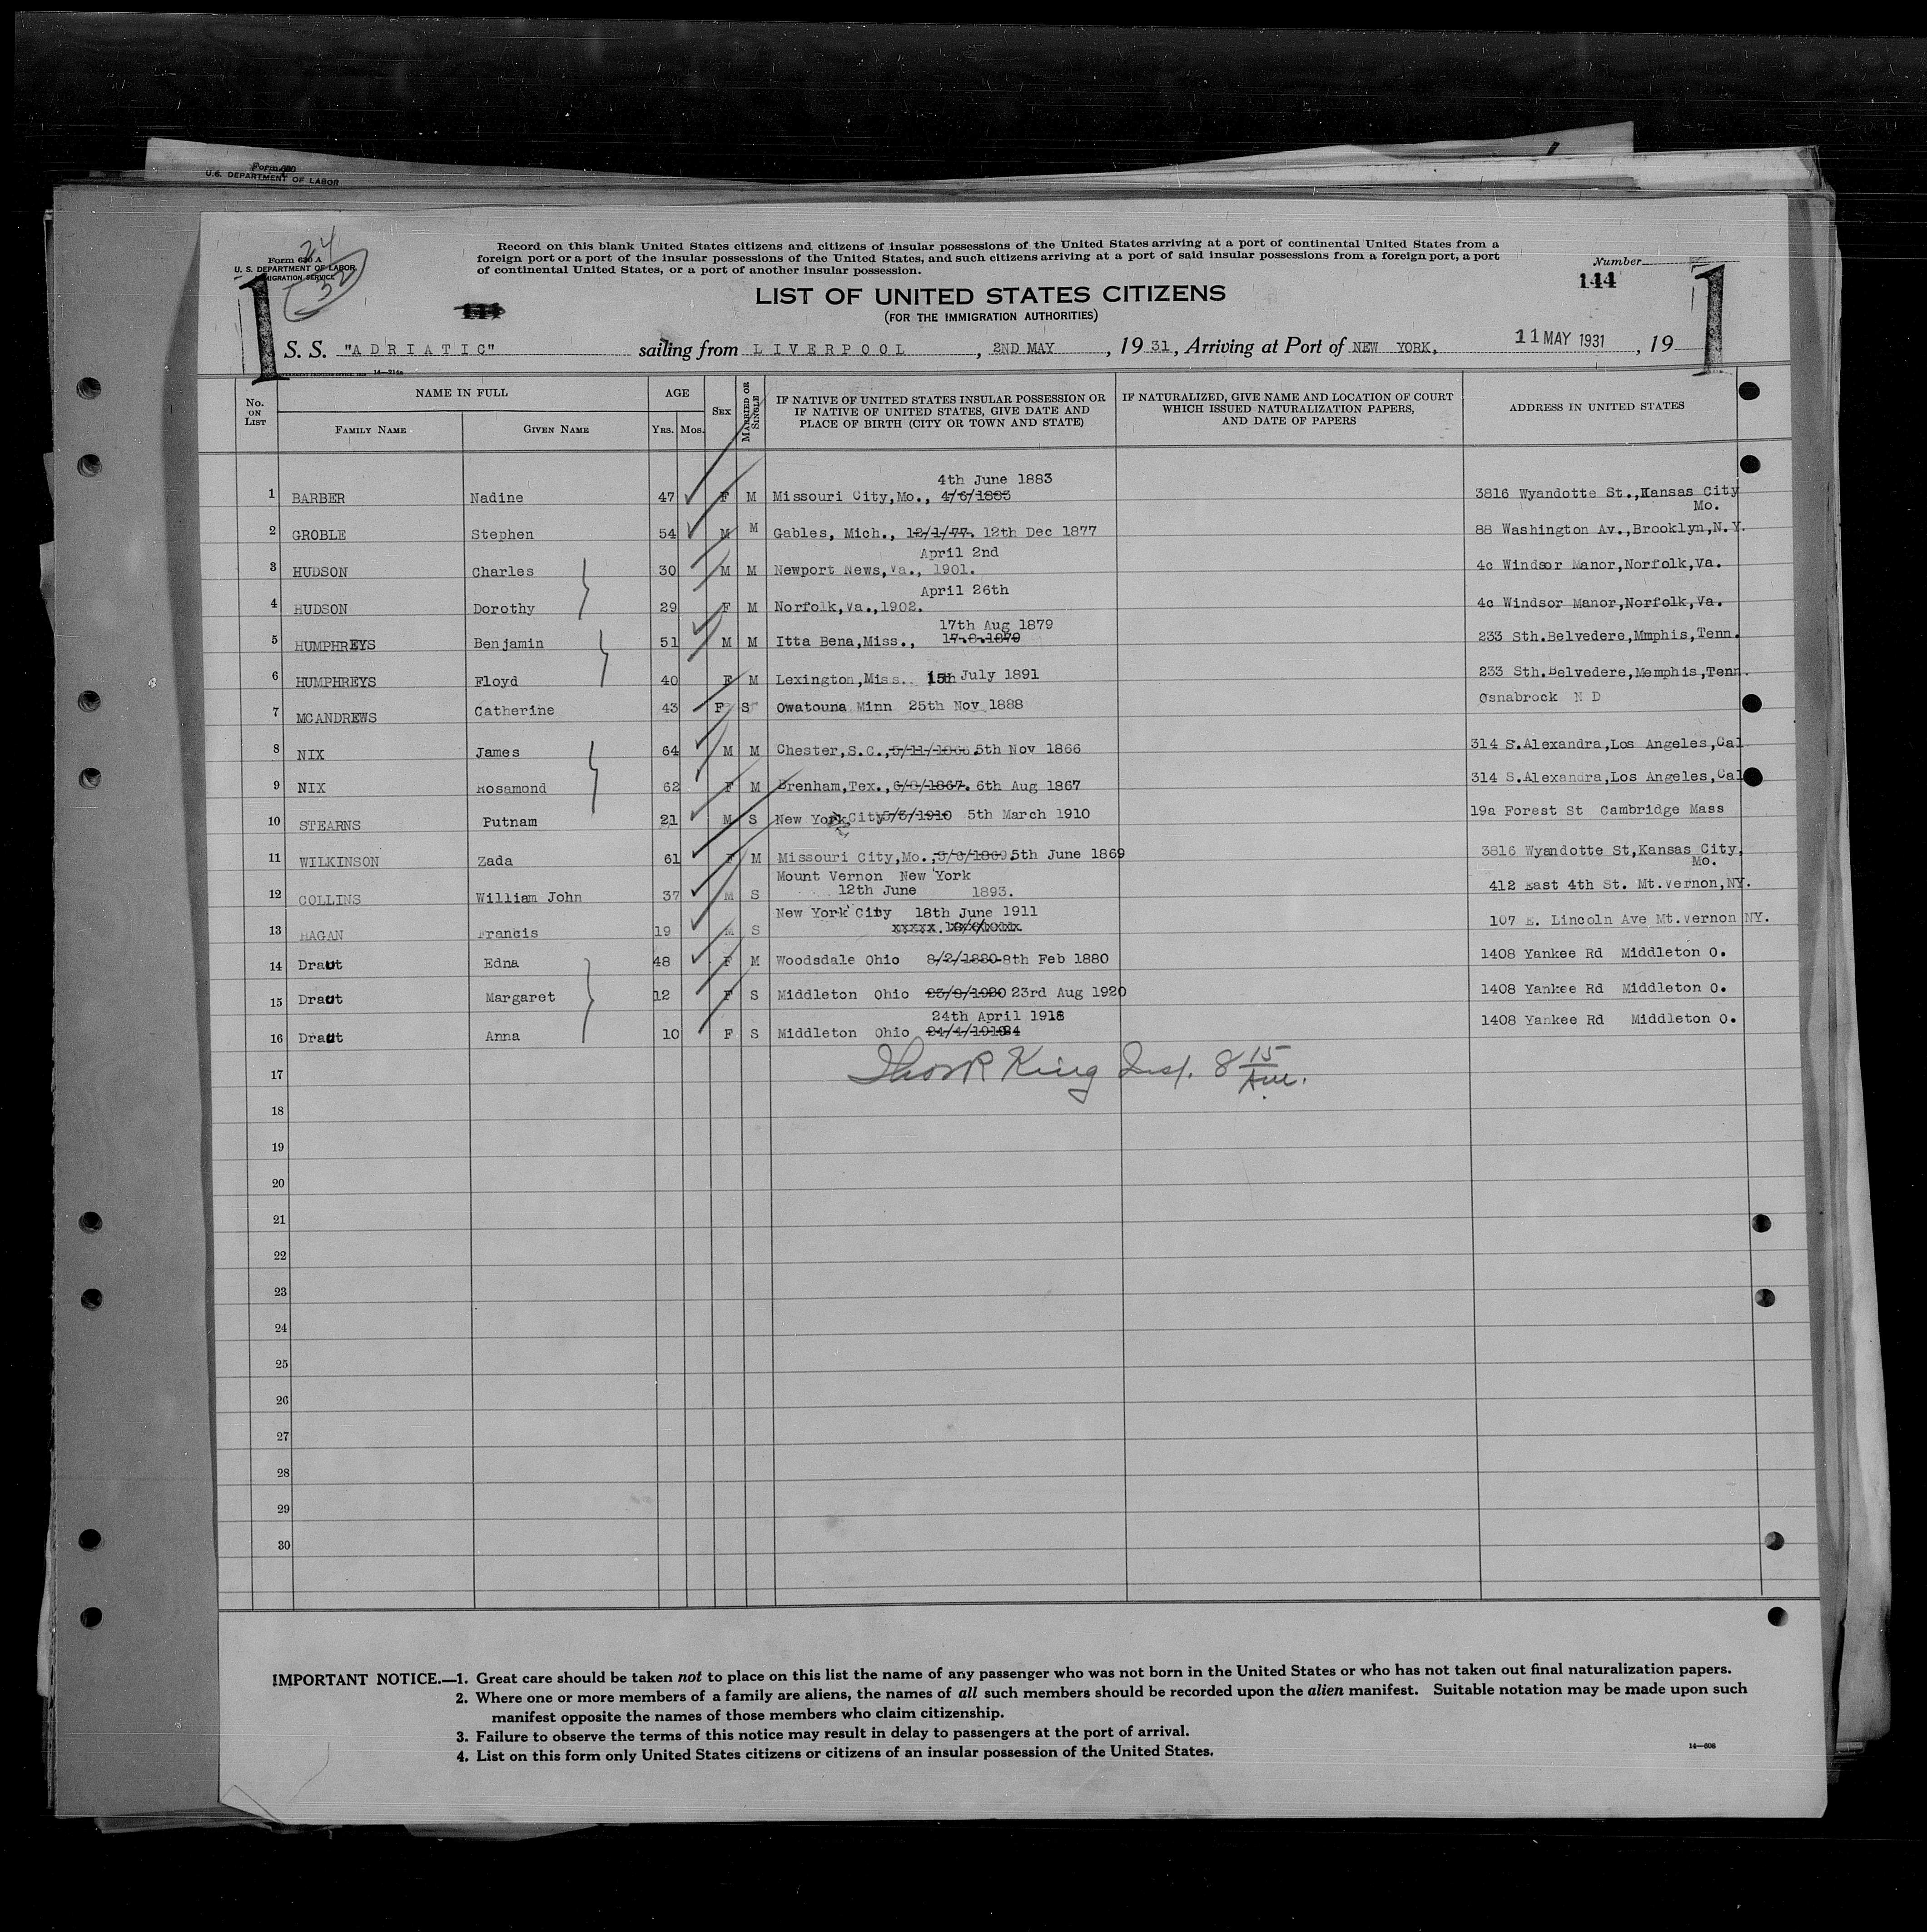 Form 630
U.S. DEPARTMENT OF LABOR
24
32
Form 630 A
U. S. DEPARTMENT OF LABOR
IMMIGRATION SERVICE
Record on this blank United States citizens and citizens of insular possessions of the United States arriving at a port of continental United States from a
foreign port or a port of the insular possessions of the United States, and such citizens arriving at a port of said insular possessions from a foreign port, a port
of continental United States, or a port of another insular possession.
Number
144
1
1
144
LIST OF UNITED STATES CITIZENS
(FOR THE IMMIGRATION AUTHORITIES)
S. S. "ADRIATIC" sailing from LIVERPOOL, 2ND MAY, 1931, Arriving at Port of NEW YORK, 11 MAY 1931, 19
14—214a
No. ON LIST NAME IN FULL AGE SEX MARRIED OR SINGLE IF NATIVE OF UNITED STATES INSULAR POSSESSION OR IF NATIVE OF UNITED STATES, GIVE DATE AND PLACE OF BIRTH (CITY OR TOWN AND STATE) IF NATURALIZED, GIVE NAME AND LOCATION OF COURT WHICH ISSUED NATURALIZATION PAPERS, AND DATE OF PAPERS ADDRESS IN UNITED STATES
FAMILY NAME GIVEN NAME YRS. MOS.
4th June 1883
1 BARBER Nadine 47 F M Missouri City,Mo., 4/6/1883 3816 Wyandotte St.,Kansas City
Mo.
2 GROBLE Stephen 54 M M Gables, Mich., 12/1/77. 12th Dec 1877 88 Washington Av.,Brooklyn,N.Y.
April 2nd
3 HUDSON Charles 30 M M Newport News,Va., 1901. 4c Windsor Manor,Norfolk,Va.
April 26th
4 HUDSON Dorothy 29 F M Norfolk,Va.,1902. 4c Windsor Manor,Norfolk,Va.
17th Aug 1879
5 HUMPHREYS Benjamin 51 M M Itta Bena,Miss., 17.8.1879 233 Sth.Belvedere,Mmphis,Tenn.
6 HUMPHREYS Floyd 40 F M Lexington,Miss. 15th July 1891 233 Sth.Belvedere,Memphis,Tenn.
7 MCANDREWS Catherine 43 F S Owatouna Minn 25th Nov 1888 Osnabrock N D
8 NIX James 64 M M Chester,S.C.,5/11/1866.5th Nov 1866 314 S.Alexandra,Los Angeles,Cal
9 NIX Rosamond 62 F M Brenham,Tex.,6/8/1867. 6th Aug 1867 314 S.Alexandra,Los Angeles,Cal
10 STEARNS Putnam 21 M S New York City 5/3/1910 5th March 1910 19a Forest St Cambridge Mass
11 WILKINSON Zada 61 F M Missouri City,Mo.,5/6/1869.5th June 1869 3816 Wyandotte St,Kansas City,
Mo.
Mount Vernon New York
12 COLLINS William John 37 M S 12th June 1893. 412 East 4th St. Mt.Vernon,NY.
New York City 18th June 1911
13 HAGAN Francis 19 M S xxxxx 107 E. Lincoln Ave Mt.Vernon NY.
14 Draut Edna 48 F M Woodsdale Ohio 8/2/1880 8th Feb 1880 1408 Yankee Rd Middleton O.
15 Draut Margaret 12 F S Middleton Ohio 23/8/1920 23rd Aug 1920 1408 Yankee Rd Middleton O.
24th April 1918
16 Draut Anna 10 F S Middleton Ohio 1408 Yankee Rd Middleton O.
17 Thos R King Insp. 8 15 Am.
18
19
20
21
22
23
24
25
26
27
28
29
30
IMPORTANT NOTICE.—1. Great care should be taken not to place on this list the name of any passenger who was not born in the United States or who has not taken out final naturalization papers.
2. Where one or more members of a family are aliens, the names of all such members should be recorded upon the alien manifest. Suitable notation may be made upon such
manifest opposite the names of those members who claim citizenship.
3. Failure to observe the terms of this notice may result in delay to passengers at the port of arrival.
4. List on this form only United States citizens or citizens of an insular possession of the United States.
14—608